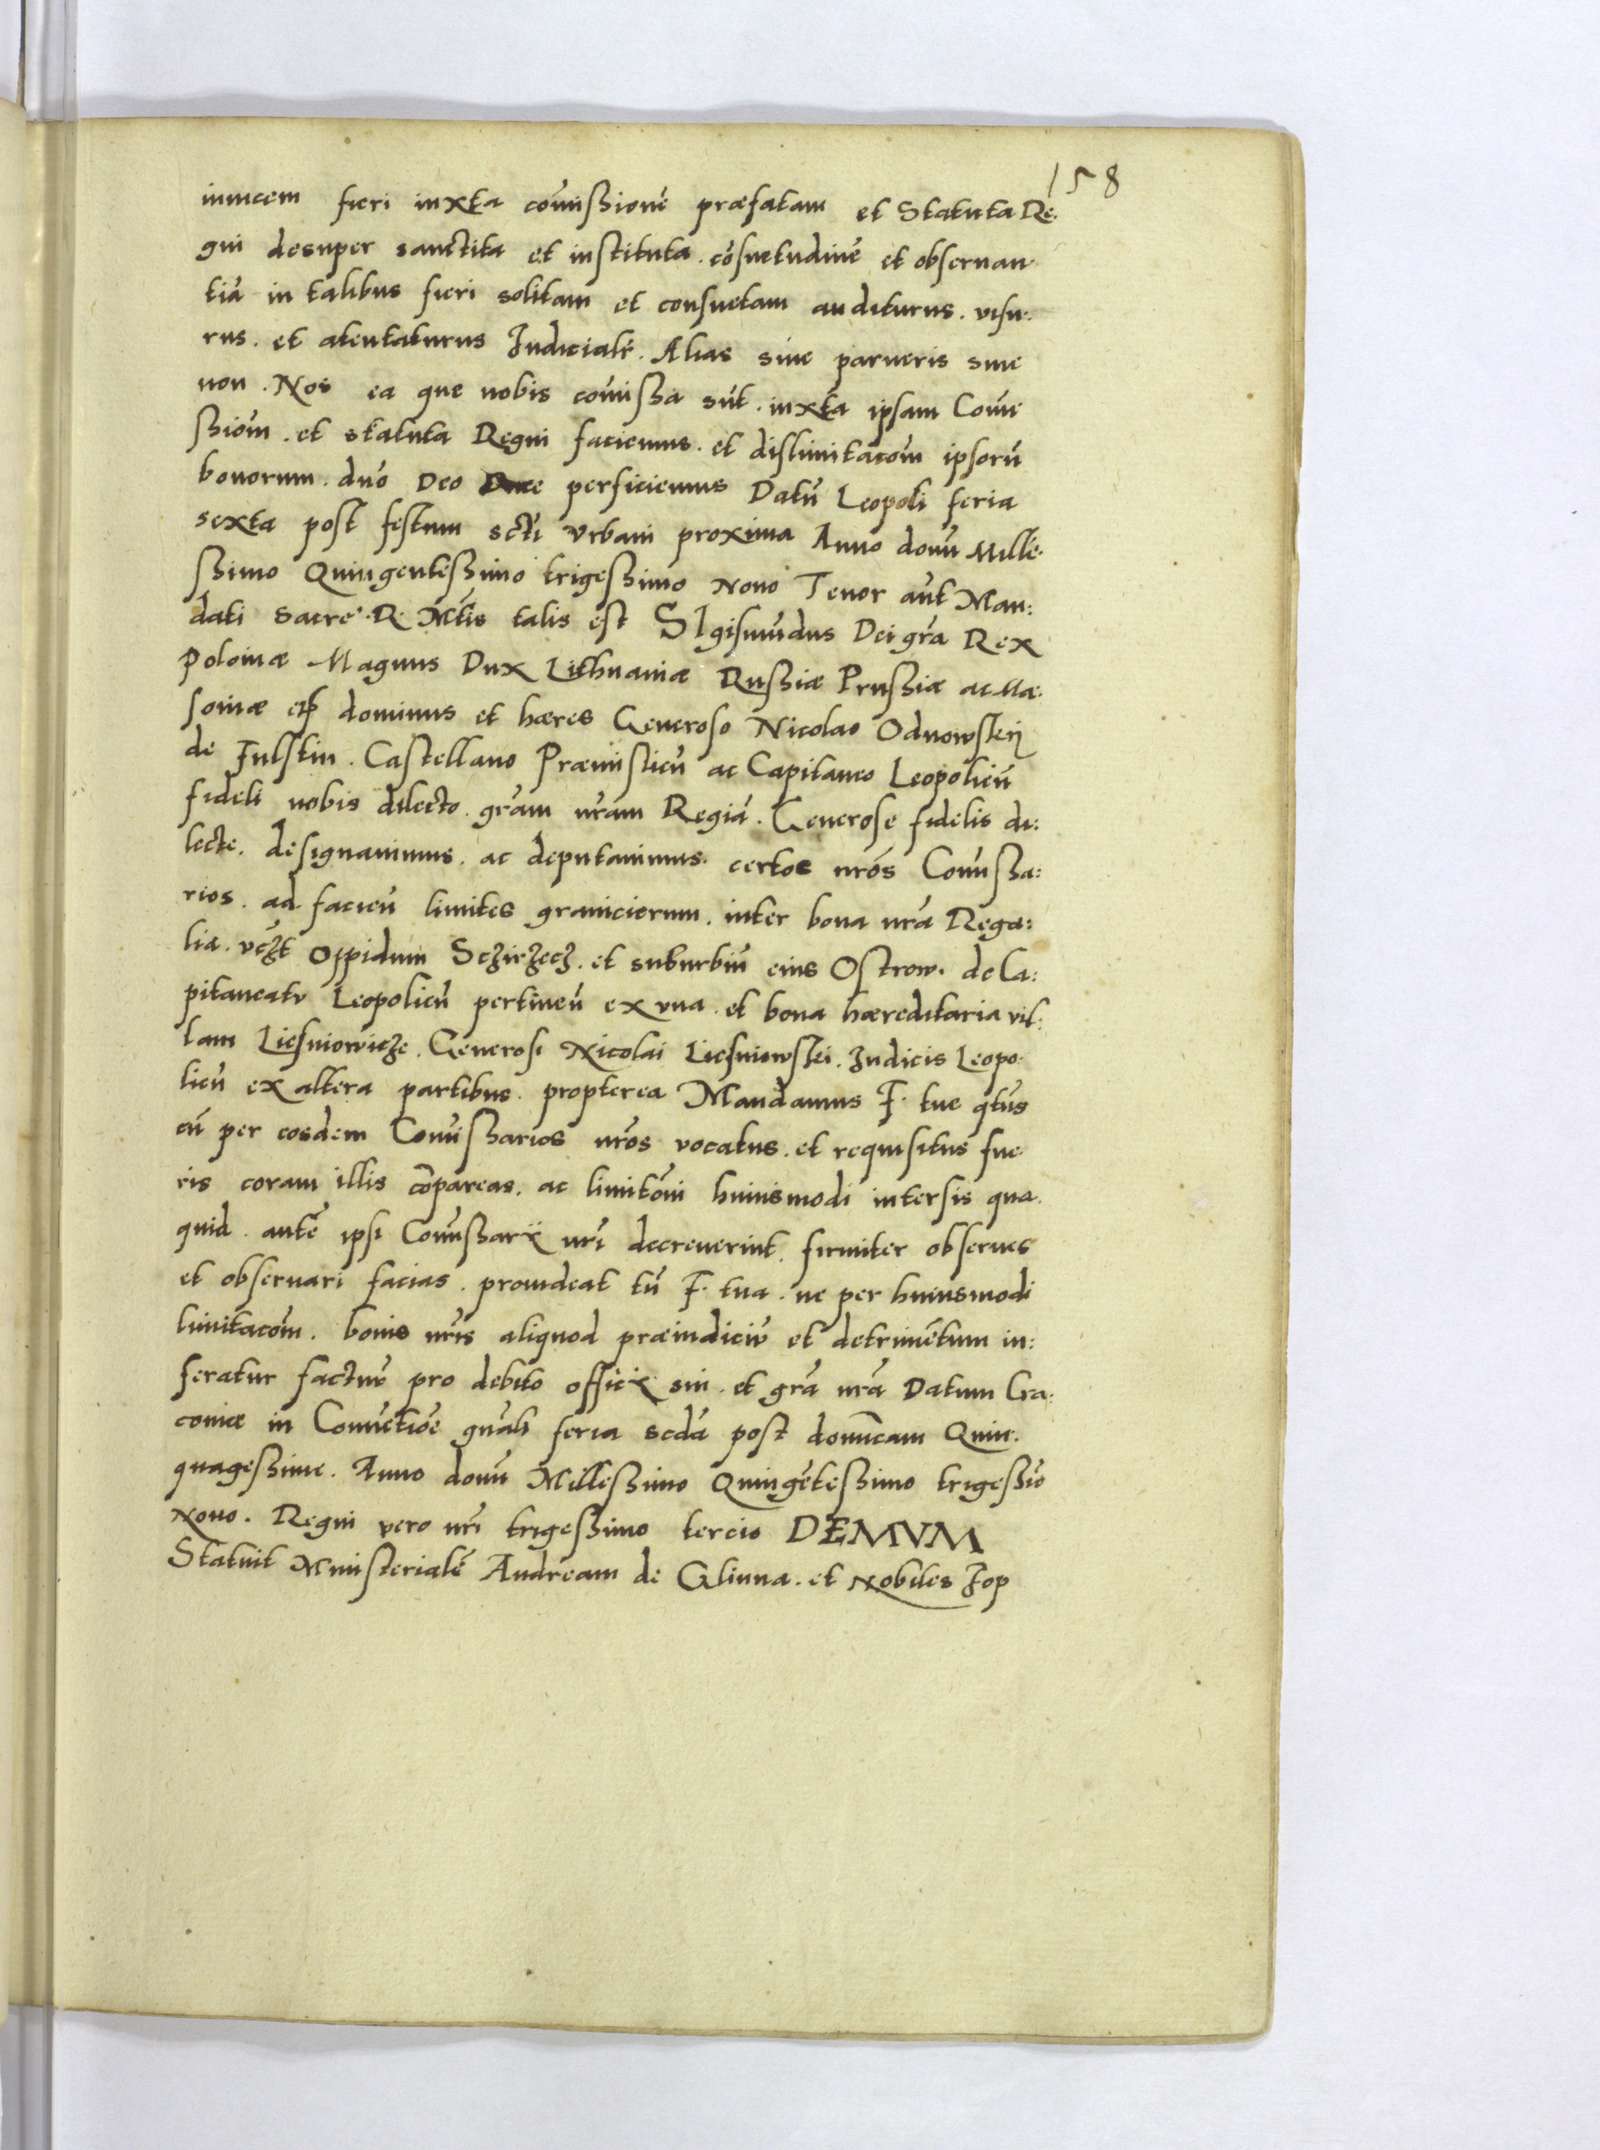 158
inuicem fieri iuxta comissione praefatam et Statuta Re.
gni desuper sanctita et instituta. cosuetudine et obseruan
tia in talibus fieri solitam et consuetam auditurus. visu.
rus. et atentaturus Iudicialr. Alias siue parueris siue
non. Nos ea que nobis comissa sut. iuxta ipsam Comi
ssiom. et statuta Regni faciemus. et dislimitacom ipsoru
bonorum. duo Deo Duce perficiemus Datu Leopoli feria
sexta post festum scti Vrbani proxima Anno domi Mille.
ssimo Quingentessimo trigessimo Nono Tenor aut Man:
dati Sacre. R. Mtis talis est SIgismudus Dei gra Rex
Poloniæ Magnus Dux Lithuaniæ Russiæ Prussiæ ac Ma.
soniæ etc dominus et hæres Generoso Nicolao Odnowskij
de Fulstin. Castellano Præmislien ac Capitaneo Leopolien
fideli nobis dilecto. gram nram Regia. Generose fidelis di:
lecte. designauimus. ac deputauimus. certos nros Comissa:
rios. ad facien limites graniciorum. inter bona nra Rega:
lia. vczt Oppidum Sczirzecz. et suburbiu eius Ostrow. de Ca:
pitaneatu Leopolien pertinen ex vna. et bona hæreditaria vil:
lam Liesniowicze. Generosi Nicolai Liesniowski. Iudicis Leopo.
lien ex altera partibus. propterea Mandamus F. tue qtus
cu per eosdem Comissarios nros vocatus. et requisitus fue
ris coram illis copareas. ac limitoni huiusmodi intersis qua.
quid. aute ipsi Comissarij nri decreuerint. firmiter obserues
et obseruari facias. prouideat tn F. tua. ne per huiusmodi
limitacom. bonis nris aliquod præiudiciu et detrimetum in:
feratur factur pro debito officij sui. et gra nra Datum Cra:
couiæ in Conuetioe gnali feria scda post domicam Quin.
quagessime. Anno domi Millessimo Quingetessimo trigessio
Nono. Regni vero nri trigessimo tercio DEMVM
Statuit Ministeriale Andream de Glinna. et Nobiles Iop